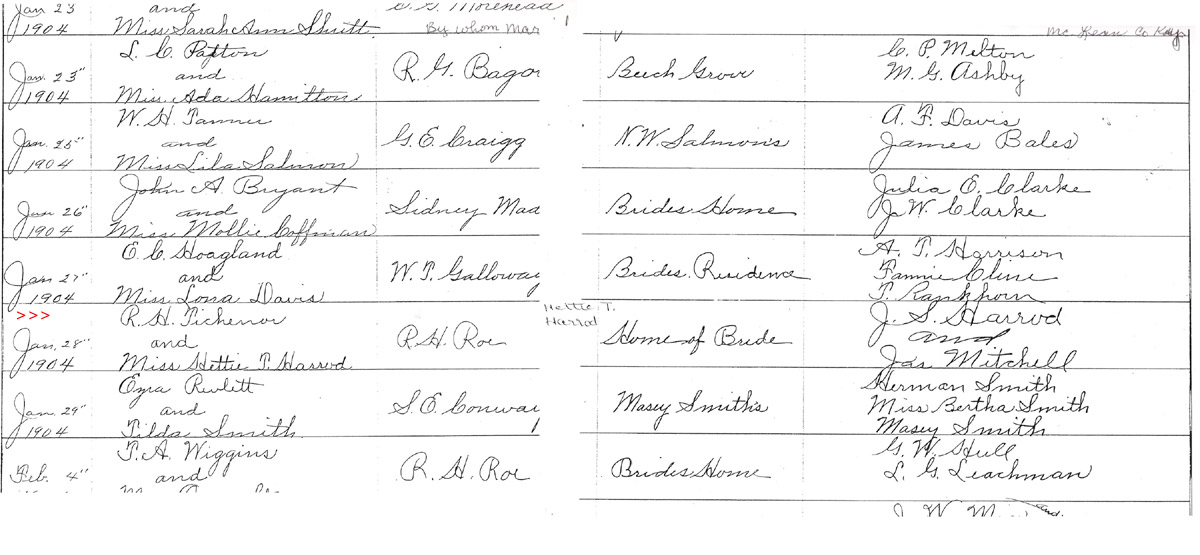 Jan 23 and
1904 Miss Sarah Ann Shutt By whom Mar Mc Lean Co Ky
L. C. Patton C. P. Melton
Jan. 23" and R. G. Bagor Beech Grove M. G. Ashby
1904 Miss Ada Hamilton
W. H. Tanner A. F. Davis
Jan. 25" and G. E. Craigg N. W. Salmon's James Bales
1904 Miss Lila Salmon
John A. Bryant Julia E. Clarke
Jan 26" and Sidney Mad Brides Home J. W. Clarke
1904 Miss Mollie Coffman
E. C. Hoagland A. T. Harrison
Jan 27" and W. T. Galloway Brides. Residence Fannie Cline
1904 Miss Lona Davis T. Rankhorn
>>> R. H. Tichenor Hettie T. Harrod J. S. Harrod
Jan. 28" and R. H. Roe Home of Bride and
1904 Miss Hettie T. Harrod Jas Mitchell
Ezra Revlett Herman Smith
Jan. 29" and S. E. Conwa Masey Smith's Miss Bertha Smith
1904 Tilda Smith Masey Smith
T. A. Wiggins G. W. Hull
Feb. 4" and R. H. Roe Brides Home L. G. Leachman
J. W.